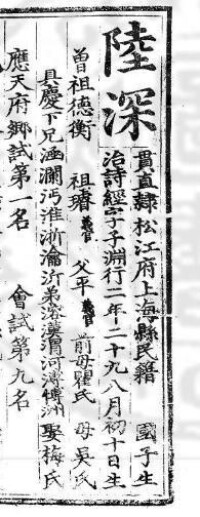 陸深
貫直隸松江府上海縣民籍 國子生
治詩經字子淵行二年二十九八月初十日生
曾祖德衡 祖璿義官 父平義官 前母瞿氏 母吳氏
具慶下兄涵瀾沔淮浙瀹沂弟溶濩渭河溥博洲 娶梅氏
應天府鄉試第一名 會試第九名